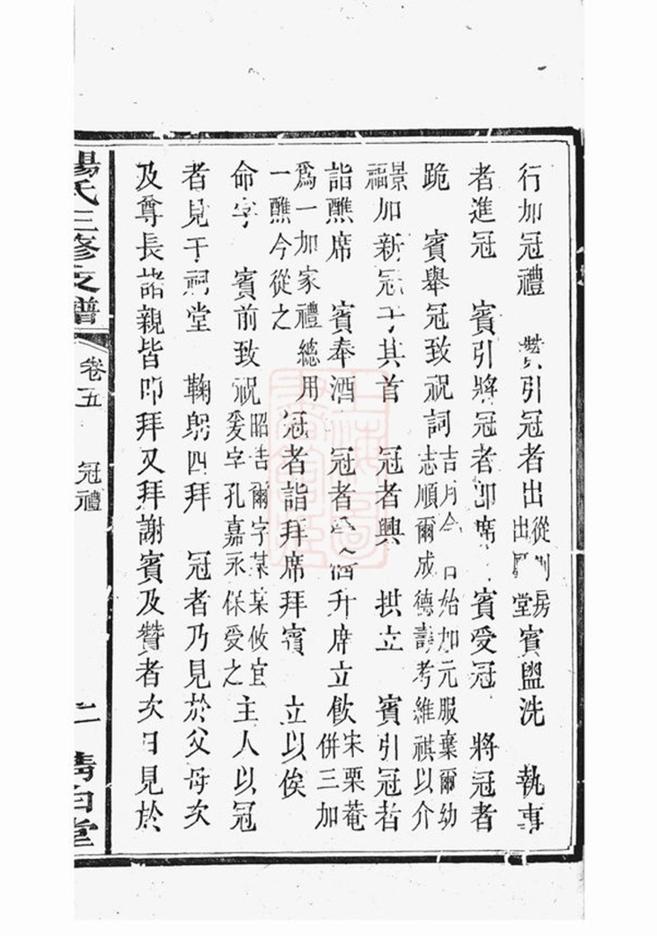 行加冠禮　贊引冠者出從房出堂賓盥洗　執事
者進冠　賓引將冠者即席　賓受冠　將冠者
跪　賓舉冠致祝詞吉月令日始加元服棄爾幼志順爾成德壽考維祺以介景福
加新冠于其首　冠者興　拱立　賓引冠者
詣醮席　賓奉酒　冠者升席立飲宋栗菴併三加爲一加家禮總用一醮今從之
冠者詣拜席拜賓　立以俟
命字　賓前致祝昭告爾字某某攸宜爰字孔嘉永保受之　主人以冠
者見于祠堂　鞠躬四拜　冠者乃見於父母次
及尊長諸親皆四拜又拜謝賓及贊者次日見於
楊氏三修支譜
卷五　冠禮
二